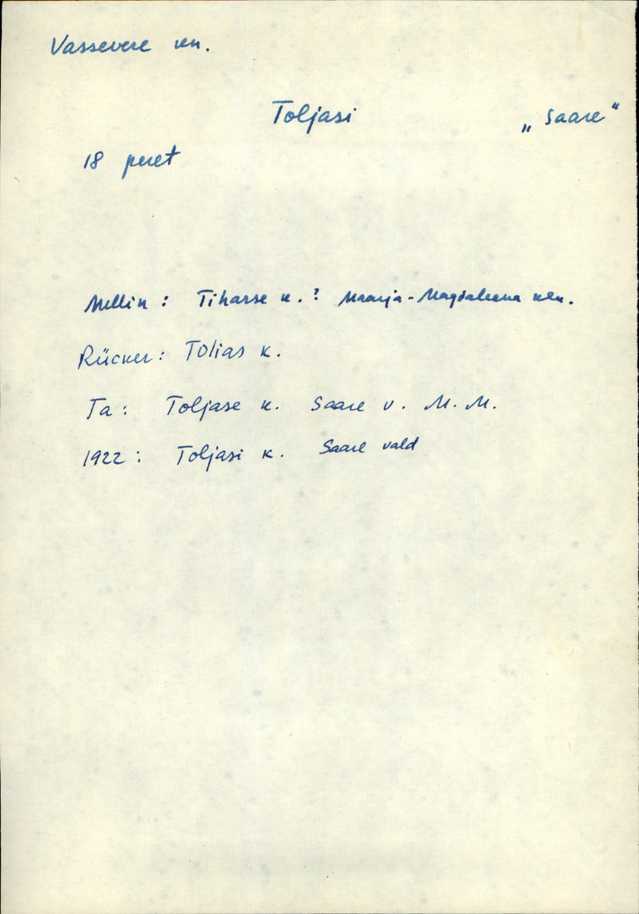 Vassevere kn.
Toljasi „Saare“
18 peret
Mellin: Tiharse k.? Maarja-Magdaleena khn.
Rücker: Tolias k.
Ta: Toljase k. Saare v. M.M.
1922: Toljasi k. Saare vald